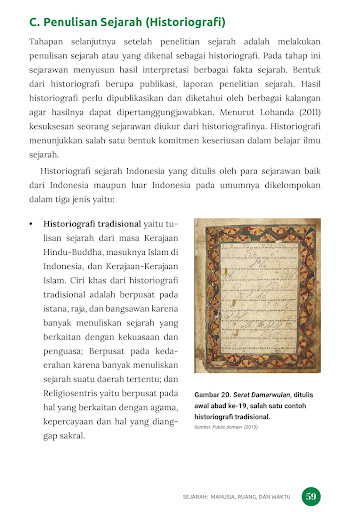 C. Penulisan Sejarah (Historiografi)
Tahapan selanjutnya setelah penelitian sejarah adalah melakukan
penulisan sejarah atau yang dikenal sebagai historiografi. Pada tahap ini
sejarawan menyusun hasil interpretasi berbagai fakta sejarah. Bentuk
dari historiografi berupa publikasi, laporan penelitian sejarah. Hasil
historiografi perlu dipublikasikan dan diketahui oleh berbagai kalangan
agar hasilnya dapat dipertanggungjawabkan. Menurut Lohanda (2011)
kesuksesan seorang sejarawan diukur dari historiografinya. Historiografi
menunjukkan salah satu bentuk komitmen keseriusan dalam belajar ilmu
sejarah.
Historiografi sejarah Indonesia yang ditulis oleh para sejarawan baik
dari Indonesia maupun luar Indonesia pada umumnya dikelompokan
dalam tiga jenis yaitu:
• Historiografi tradisional yaitu tu-
lisan sejarah dari masa Kerajaan
Hindu-Buddha, masuknya Islam di
Indonesia, dan Kerajaan-Kerajaan
Islam. Ciri khas dari historiografi
tradisional adalah berpusat pada
istana, raja, dan bangsawan karena
banyak menuliskan sejarah yang
berkaitan dengan kekuasaan dan
penguasa; Berpusat pada keda-
erahan karena banyak menuliskan
sejarah suatu daerah tertentu; dan
Religiosentris yaitu berpusat pada
hal yang berkaitan dengan agama,
kepercayaan dan hal yang diang-
gap sakral.
Gambar 20. Serat Damarwulan, ditulis
awal abad ke-19, salah satu contoh
historiografi tradisional.
Sumber: Public domain (2013)
SEJARAH: MANUSIA, RUANG, DAN WAKTU
59